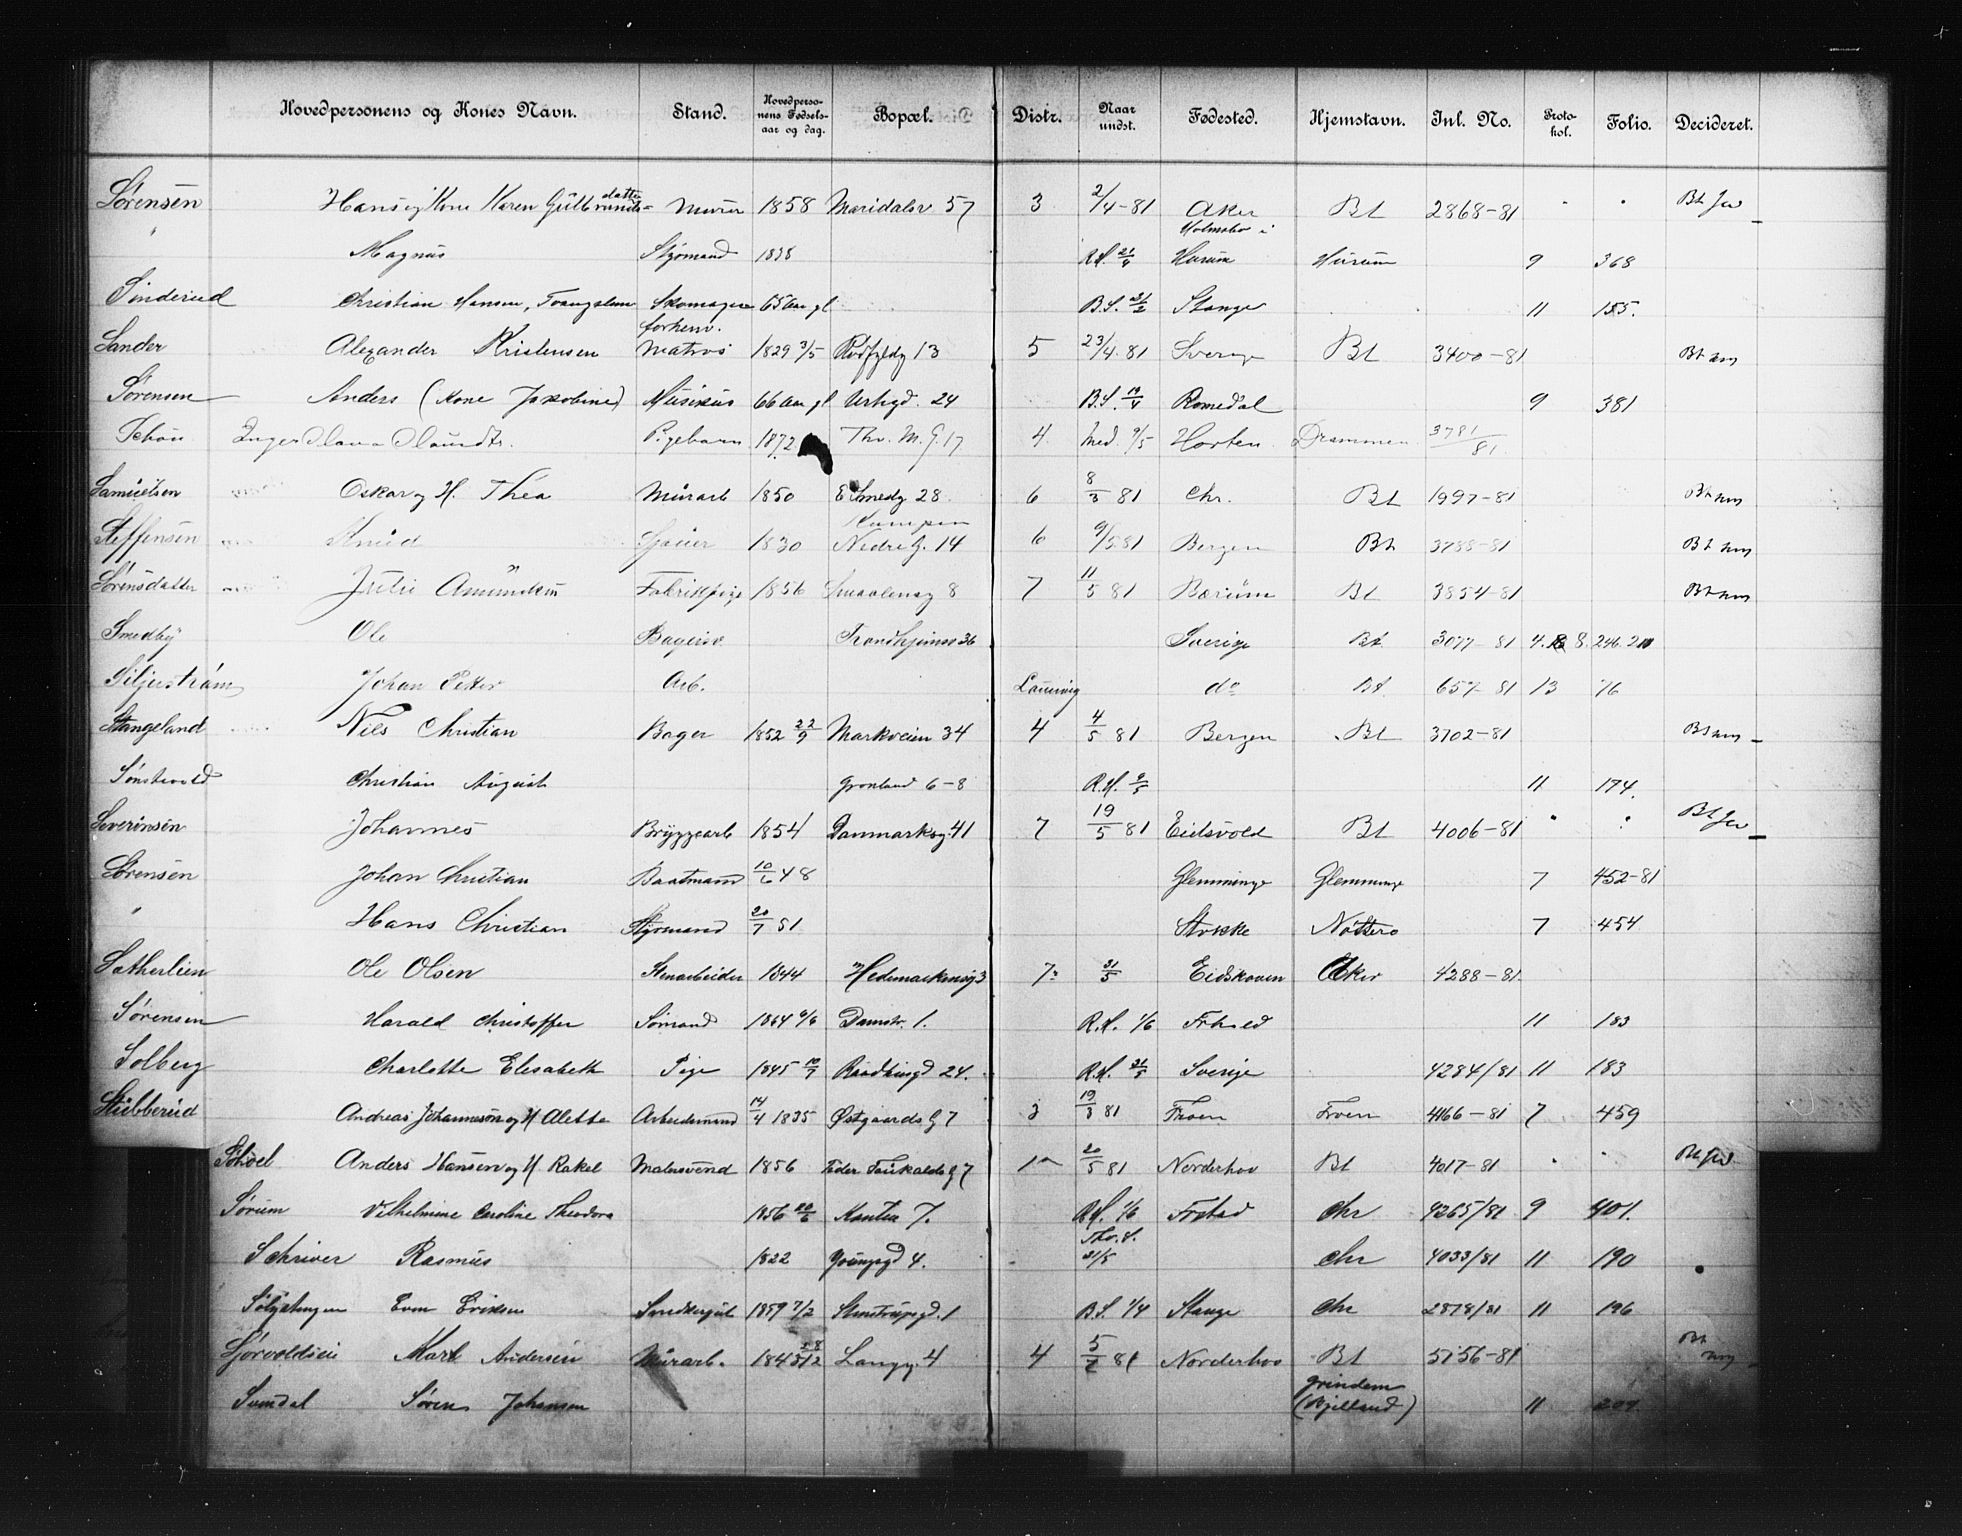 Hovedpersonens og Kones Navn. Stand. Hovedpersonens Fødselsaar og dag. Bopæl. Distr. Naar undst. Fødested. Hjemstavn. Inl. No. Protokol. Folio. Decideret.
Sørensen Hans og Kone Karen Gulbrandsdatter Murer 1858 Maridalsv 57 3 2/4-81 Aker Bt 2868-81 " " Bt
" Magnus Styrmand 1838 R.H. 21/4 Holmsbo i Hurum Hurum 9 368
Sinderud Christian Hansen, Tvangslem Skomager 65 Aar gl B.S. 21/2 Stange 11 155.
Sander Alexander Kristensen forhenv. Matros 1829 3/5 Rødfyldg 13 5 23/4.81 Sverige Bt 3400-81 Bt
Sørensen Anders (Kone Jakobine) Musikus 66 Aar gl Urtegd. 24 B.S. 19/4 Romedal 9 381
Schøn Inger Olava Olaundtr. Pigebarn 1872 Thv. M. G. 17 4 Med. 9/5 Horten Drammen 3781/81
Samuelsen Oskar og H. Thea Murarb 1850 E Smedg 28 6 8/3 81 Chr. Bt 1997-81 Bt
Steffensen Knud 1830 Kampen Nedre G. 14 6 9/5 81 Bergen Bt 3788-81 Bt
Sørensdatter Julie Amundsen Fabrikpige 1856 Smaaleng 8 7 11/5 81 Bærum Bt 3854-81 Bt
Smedby Ole Bagersv. Trondhjemsv 36 Sverige Bt 3077-81 4. 8. 246.
Siljeström Johan Petter Arb. Laurvig do Bt. 657-81 13 76
Stangeland Nils Christian Bager 1852 22/9 Markveien 34 4 4/5 81 Bergen Bt 3702-81 Bt
Sønstevold Christian August Grønland 6-8 R.H. 9/5 11 174.
Severinsen Johannes Bryggearb 1854 Danmarksg. 41 7 19/5 81 Eidsvold Bt 4006-81 " " Bt
Sørensen Johan Christian Baatmand 10/6 48 Glemminge Glemminge 7 452-81
" Hans Christian Styrmand 20/7 51 Stokke Nøtterø 7 454
Sætherlien Ole Olsen Stenarbeider 1844 Hedemarkensg 3 7 31/5 Eidskoven Aker 4288-81.
Sørensen Harald Christoffer Sømand 1864 6/6 Damstr. 1. R.H. 1/6 Frhsted 11 183
Solberg Charlotte Elisabeth Pige 1845 10/7 Raadhusgd 24. R.H. 31/5 Sverige 4284/81 11 183
Stubberud Andreas Johannesen og H Alette Arbeidsmand 14/4 1835 Østgaards G 7 3 19/3 81 Froen Froen 4166-81 7 459
Schoel Anders Hansen og H Rakel Malersvend 1856 Peder Foukalds G 7 1a 20/5 81 Norderhov Bt 4017-81 " " Bt
Sørum Vilhelmine Caroline Theodora 1856 20/6 Kasten 7. R.H. 1/6 Frstad Chr 4265/81 9 401.
Schriver Rasmus 1822 Youngsgd 4. Thv. S. 21/5 Chr 4033/81 11 190
Even Eriksen Snedkergut 1859 7/2 Stenstrupsgd. 1 B.S. 1/4 Stange Chr 2878/81 11 196
Sjørvoldsen Mart Andersen Murarb. 1845 28/12 Langg. 4 4 5/7 81 Norderhov Bt 5756-81 Bt
Sundal Søren Johansen Grindem (Bjelland) 11 204.